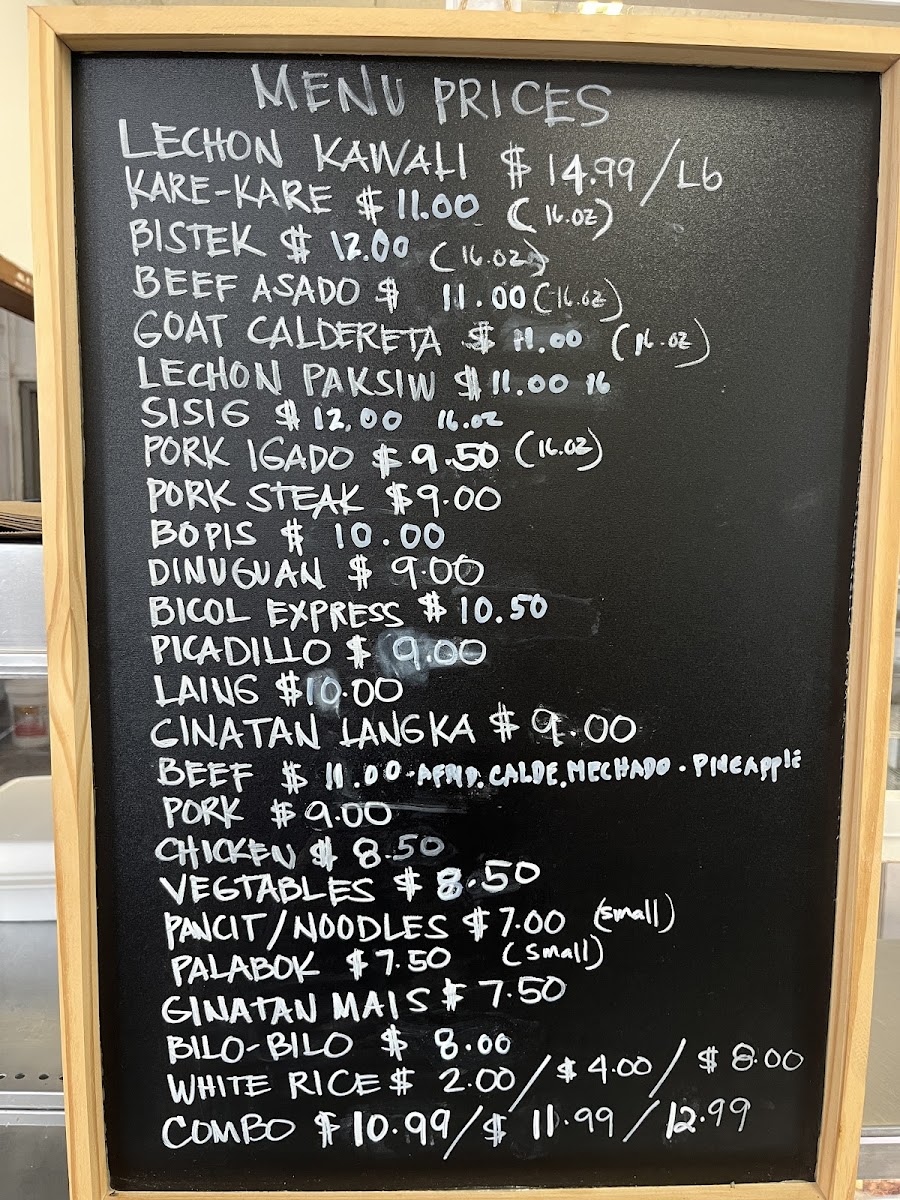 MENU PRICES
LECHON KAWALI $ 14.99/Lb
KARE-KARE $ 11.00 (16.OZ)
BISTEK $ 12.00 (16.OZ)
BEEF ASADO $ 11.00 (16.OZ)
GOAT CALDERETA $ 11.00 (16.OZ)
LECHON PAKSIW $ 11.00 16
SISIG $ 12.00 16.OZ
PORK IGADO $ 9.50 (16.OZ)
PORK STEAK $9.00
BOPIS $ 10.00
DINUGUAN $ 9.00
BICOL EXPRESS $ 10.50
PICADILLO $ 9.00
LAING $10.00
GINATAN LANGKA $ 9.00
BEEF $ 11.00 - AFND. CALDE. MECHADO . PINEApplE
PORK $ 9.00
CHICKEN $ 8.50
VEGTABLES $ 8.50
PANCIT/NOODLES $ 7.00 (small)
PALABOK $ 7.50 (small)
GINATAN MAIS $ 7.50
BILO-BILO $ 8.00
WHITE RICE $ 2.00 / $ 4.00 / $ 8.00
COMBO $ 10.99/$ 11.99 / 12.99